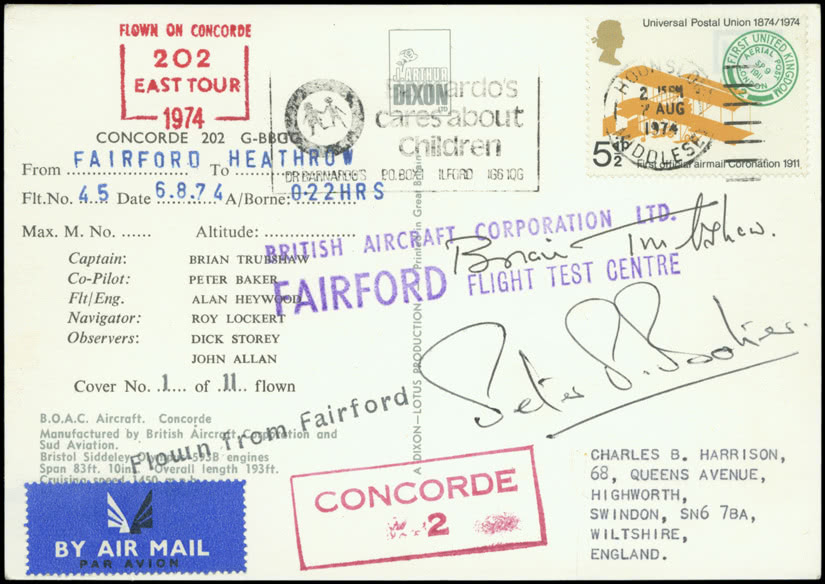 FLOWN ON CONCORDE
202
EAST TOUR
1974
CONCORDE 202 G-BBGG
From FAIRFORD To HEATHROW
Flt.No. 45 Date 6.8.74 A/Borne: 0.22HRS
Max. M. No. ...... Altitude: ....................
Captain: BRIAN TRUBSHAW
Co-Pilot: PETER BAKER
Flt/Eng. ALAN HEYWOOD
Navigator: ROY LOCKERT
Observers: DICK STOREY
JOHN ALLAN
Cover No. 1 of 11 flown
Flown from Fairford
B.O.A.C. Aircraft. Concorde
Manufactured by British Aircraft Corporation and
Sud Aviation.
Bristol Siddeley Olympus 593B engines
Span 83ft. 10in. Overall length 193ft.
Cruising speed 1450 m.p.h.
BY AIR MAIL
PAR AVION
J. ARTHUR
DIXON
Barnardo's
cares about
Children
DR BARNARDO'S P.O. BOX ILFORD IG6 1QG
A DIXON—LOTUS PRODUCTION
Printed in Great Britain
Universal Postal Union 1874/1974
FIRST UNITED KINGDOM
AERIAL POST
SP 9
1911
LONDON
5½
First official airmail Coronation 1911
HOUNSLOW
2 15PM
7 AUG
1974
MIDDLESEX
BRITISH AIRCRAFT CORPORATION LTD.
FAIRFORD FLIGHT TEST CENTRE
Brian Trubshaw.
CONCORDE
2
CHARLES B. HARRISON,
68, QUEENS AVENUE,
HIGHWORTH,
SWINDON, SN6 7BA,
WILTSHIRE,
ENGLAND.